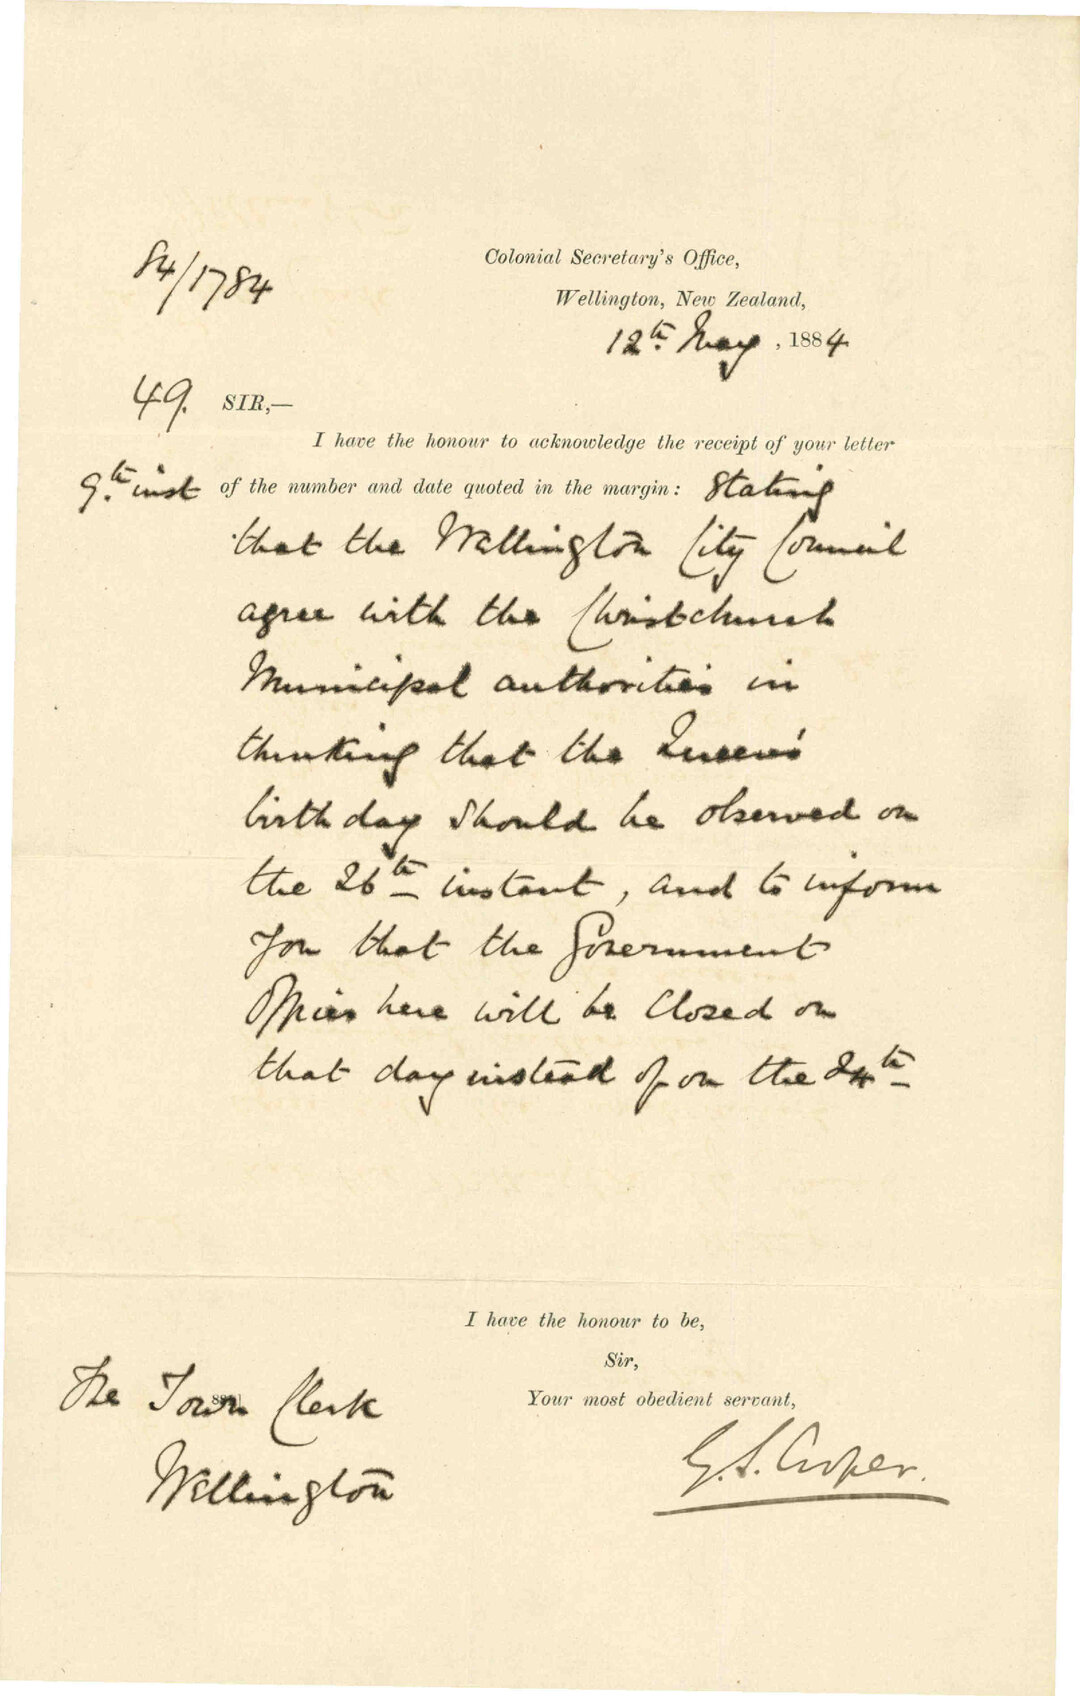 84/1784
Colonial Secretary's Office,
Wellington, New Zealand,
12th. May, 1884.
49. SIR,—
I have the honour to acknowledge the receipt of your letter
9th. inst of the number and date quoted in the margin: stating
that the Wellington City Council
agree with the Christchurch
Municipal authorities in
thinking that the Queen's
birthday should be observed on
the 26th instant, and to inform
you that the Government
Offices here will be closed on
that day instead of on the 24th
I have the honour to be,
Sir,
Your most obedient servant,
G. S. Cooper.
The Town Clerk
Wellington